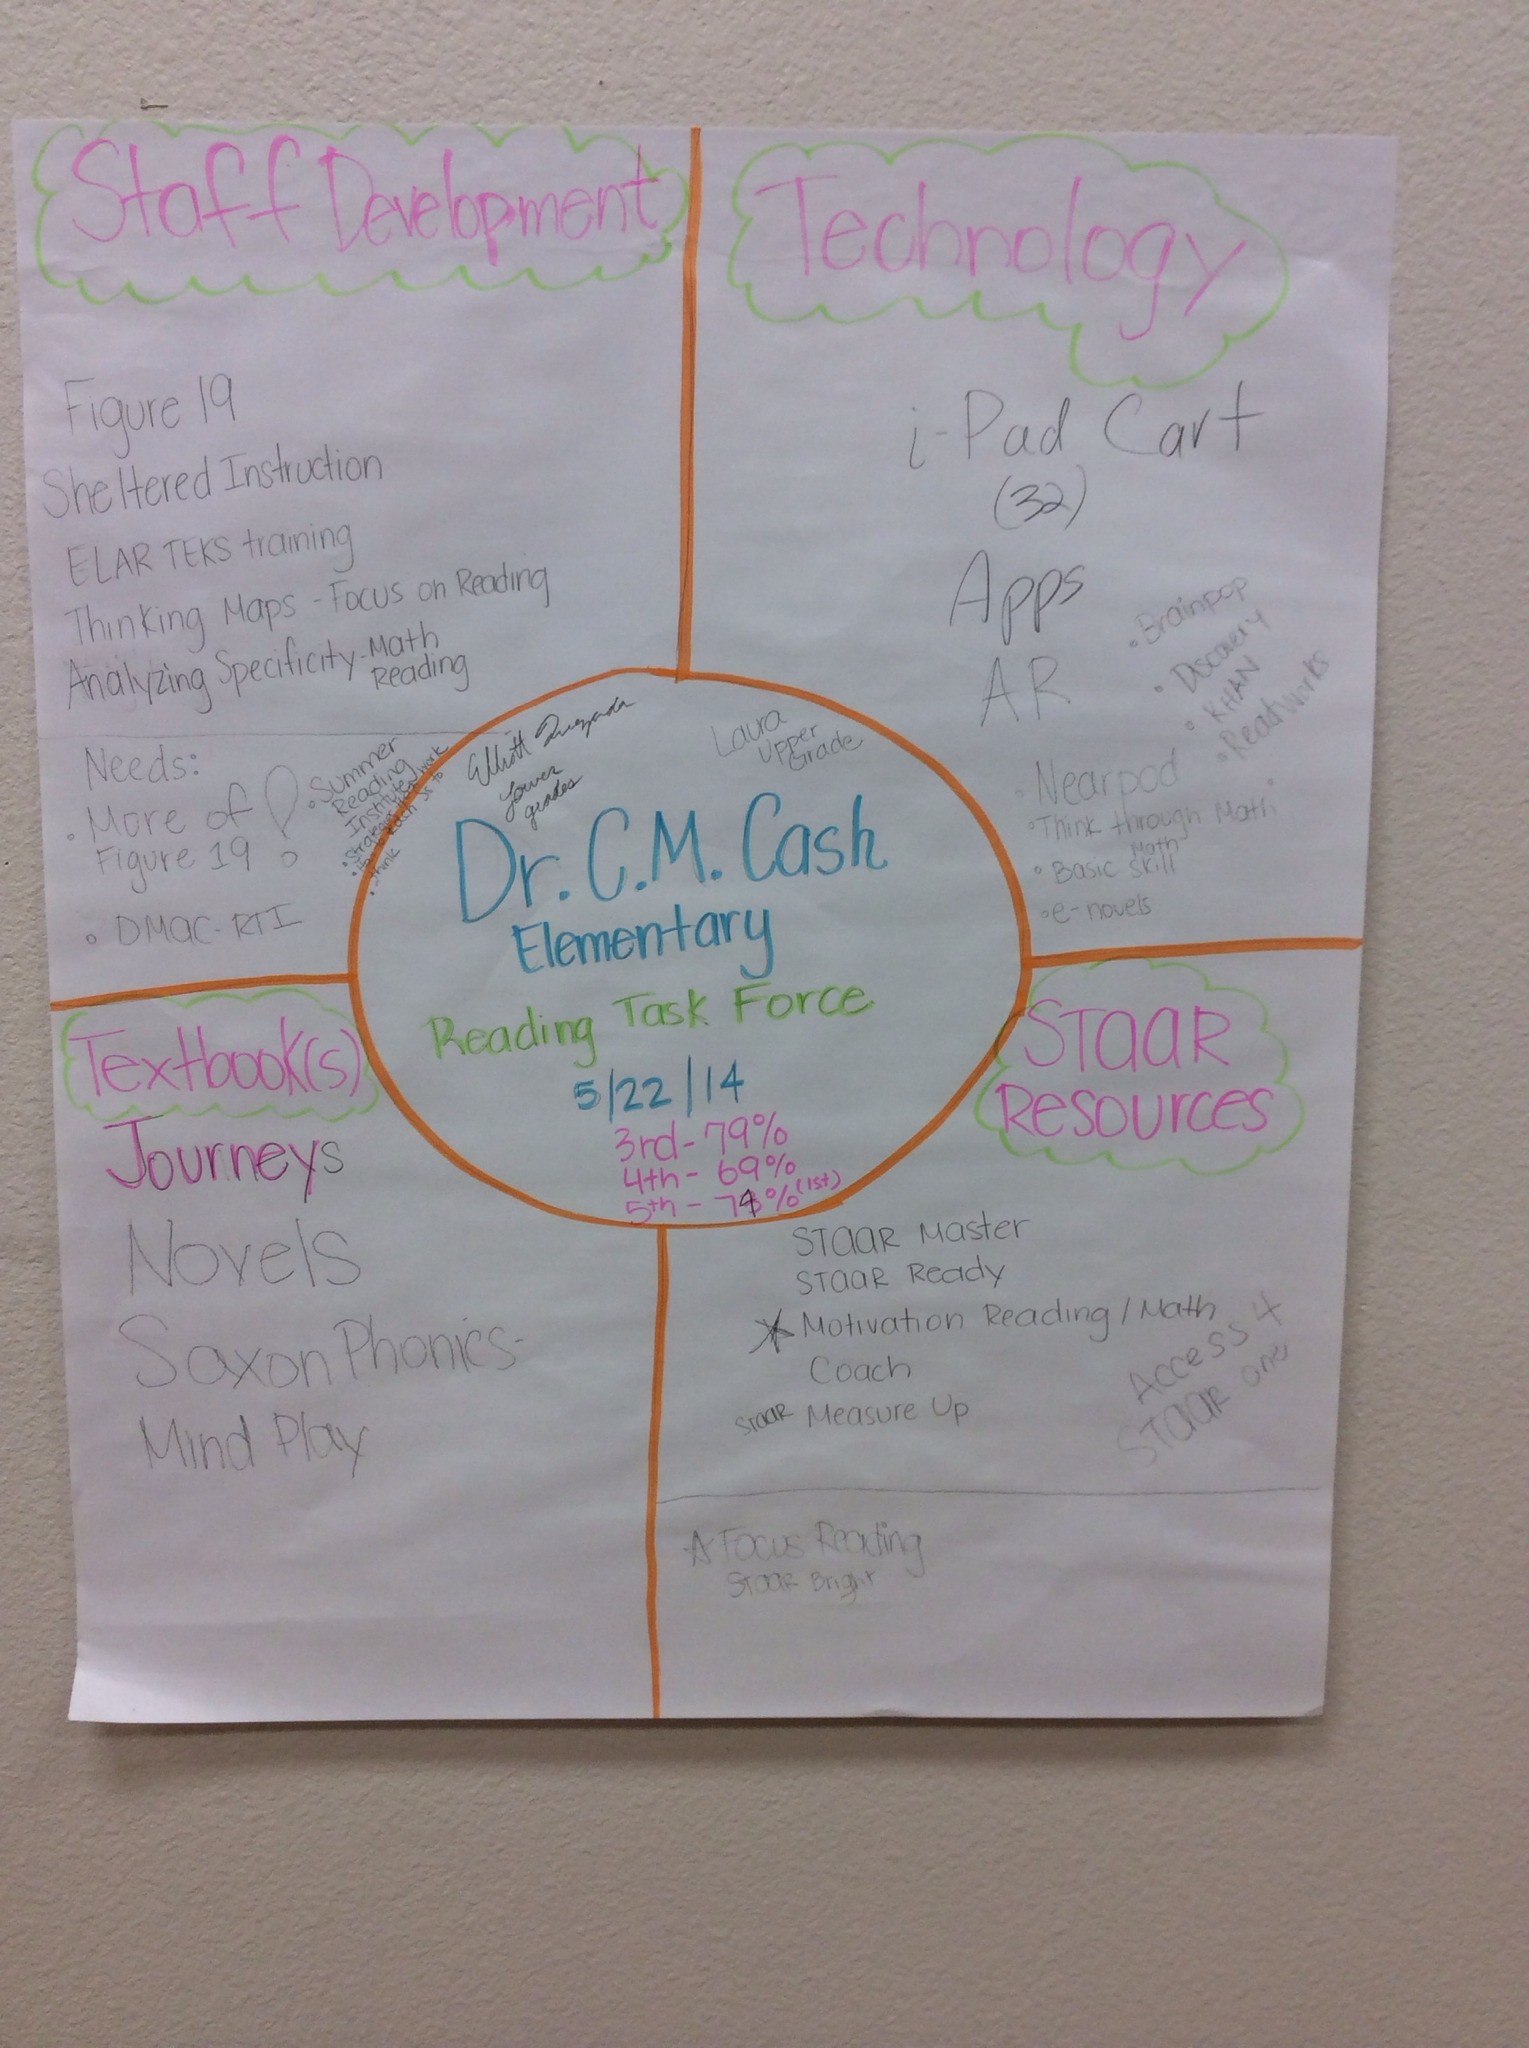 Staff Development
Figure 19
Sheltered Instruction
ELAR TEKS training
Thinking Maps - Focus on Reading
Analyzing Specificity - Math
Reading
Needs:
• More of
Figure 19
• DMAC - RTI
• Summer
Reading
Institute
• think
Technology
i-Pad Cart
(32)
Apps
AR
• Brainpop
• Discovery
• KHAN
• ReadWorks
• Nearpod
• Think through Math
• Basic Math Skill
• e-novels
Elliott Quezada
Lower
grades
Laura
Upper
Grade
Dr. C.M. Cash
Elementary
Reading Task Force
5/22/14
3rd - 79%
4th - 69%
5th - 74% (1st)
Textbook(s)
Journeys
Novels
Saxon Phonics -
Mind Play
STAAR
Resources
STAAR Master
STAAR Ready
Motivation Reading / Math
Coach
STAAR Measure Up
Access 4
STAAR one
Focus Reading
STAAR Bright